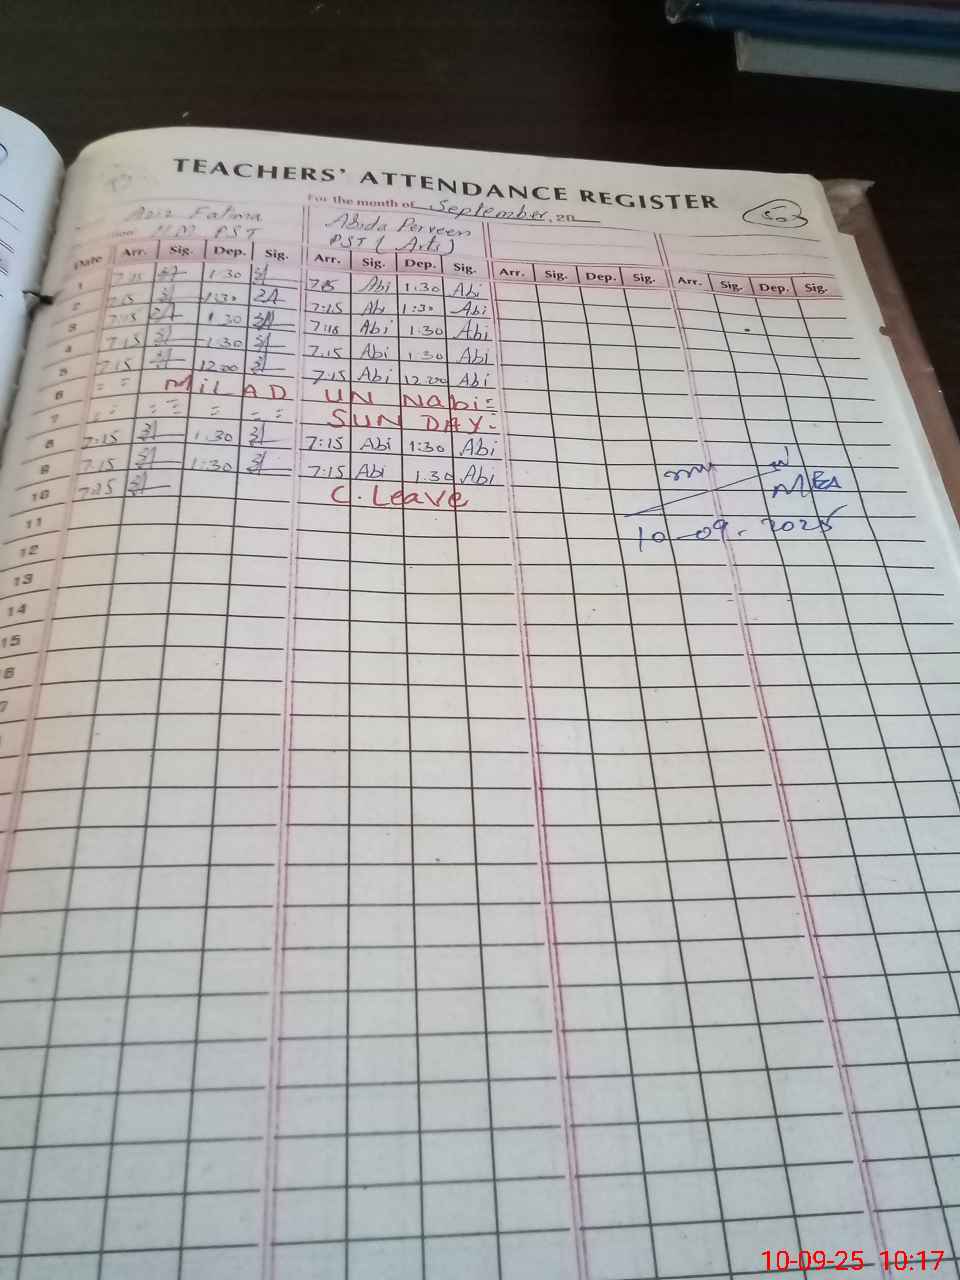 TEACHERS' ATTENDANCE REGISTER
For the month of September, 20
Aziz Fatima Abida Perveen
PST PST (Arts)
Date Arr. Sig. Dep. Sig. Arr. Sig. Dep. Sig. Arr. Sig. Dep. Sig. Arr. Sig. Dep. Sig.
1 7:15 1:30 Abi 1:30 Abi
2 7:15 1:30 7:15 Abi 1:30 Abi
3 7:15 1:30 Abi 1:30 Abi
4 7:15 1:30 7:15 Abi 1:30 Abi
5 7:15 12.00 7:15 Abi 12.00 Abi
6 MILAD UN Nabi
7 SUNDAY
8 7:15 1:30 7:15 Abi 1:30 Abi
9 7.15 1:30 7:15 Abi 1.30 Abi
10 C. Leave
MEA
10-09-2025
11
12
13
14
15
10-09-25 10:17